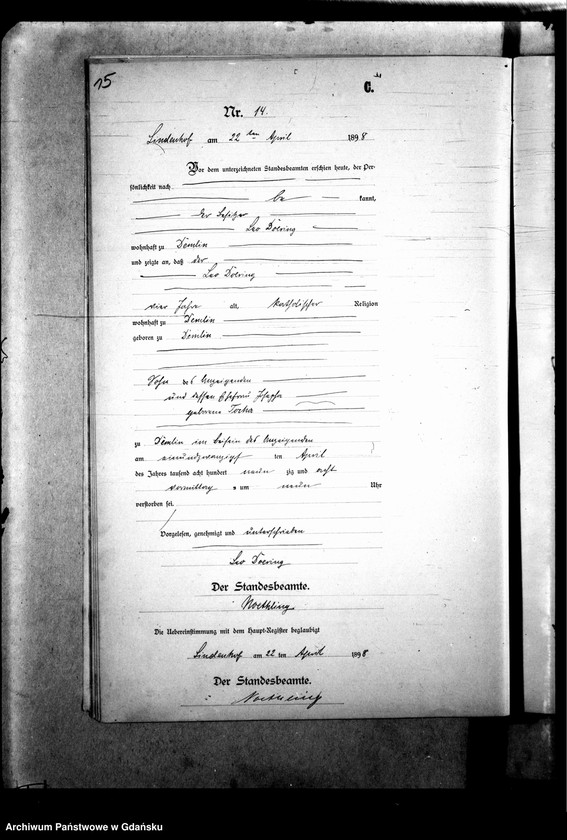 15
C.
Nr. 14.
Lindenhof am 22 ten April 1898
Vor dem unterzeichneten Standesbeamten erschien heute, der Per-
sönlichkeit nach
be kannt,
der Besitzer
Leo Döring
wohnhaft zu Demlin
und zeigte an, daß der
Leo Döring
vier Jahre alt, katholischer Religion
wohnhaft zu Demlin
geboren zu Demlin
Sohn des Anzeigenden
und dessen Ehefrau Josepha
geborene
zu Demlin im Beisein des Anzeigenden
am einundzwanzigst ten April
des Jahres tausend acht hundert neun zig und acht
vormittag s um neun Uhr
verstorben sei.
Vorgelesen, genehmigt und unterschrieben
Leo Doering
Der Standesbeamte.
Noethling
Die Uebereinstimmung mit dem Haupt-Register beglaubigt
Lindenhof am 22 ten April 1898
Der Standesbeamte.
Noethling
Archiwum Państwowe w Gdańsku